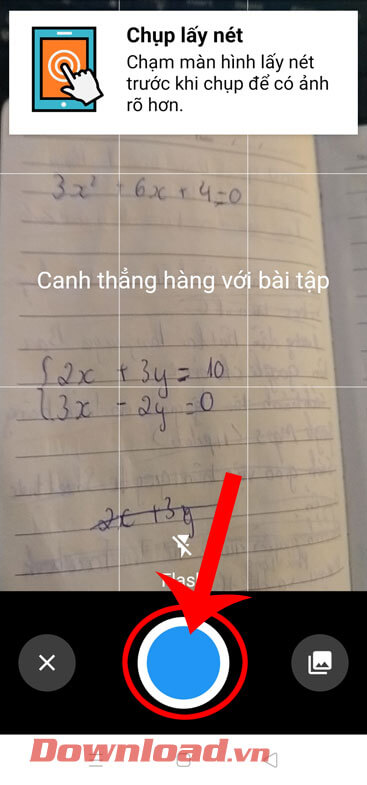 Chụp lấy nét
Chạm màn hình lấy nét
trước khi chụp để có ảnh
rõ hơn.
3x² + 6x + 4 = 0
Canh thẳng hàng với bài tập
{2x + 3y = 10
{3x - 2y = 0
2x + 3y
Flash
Download.vn